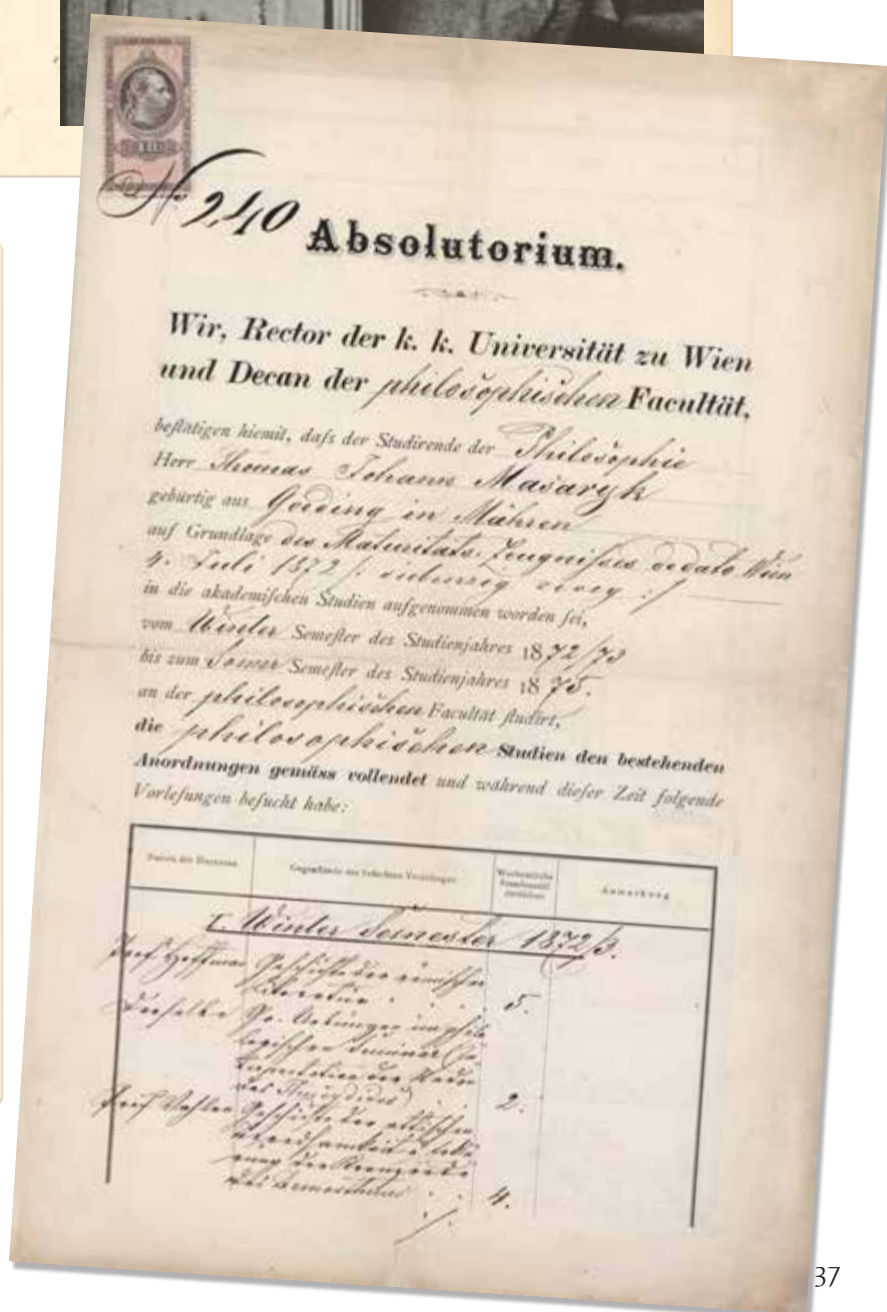 No 240
Absolutorium.
Wir, Rector der k. k. Universität zu Wien
und Decan der philosophischen Facultät,
beſtätigen hiemit, daſs der Studirende der Philosophie
Herr Thomas Johann Masaryk
gebürtig aus Goeding in Mähren
auf Grundlage des Maturitäts-Zeugniſses de dato Wien
4. Juli 1872 /: siebenzig zwey :/
in die akademiſchen Studien aufgenommen worden ſei,
vom Winter Semeſter des Studienjahres 1872/73
bis zum Somer Semeſter des Studienjahres 1875.
an der philosophischen Facultät ſtudirt,
die philosophischen Studien den bestehenden
Anordnungen gemäss vollendet und während dieſer Zeit folgende
Vorleſungen beſucht habe:
Namen der Docenten Gegenſtände der beſuchten Vorleſungen Wöchentliche Stundenzahl derſelben Anmerkung
I. Winter Semester 1872/3.
Geschichte der römischen
Literatur 5.
Derselbe
2.
Prof Vahlen Geschichte der attischen
Beredsamkeit
4.
37